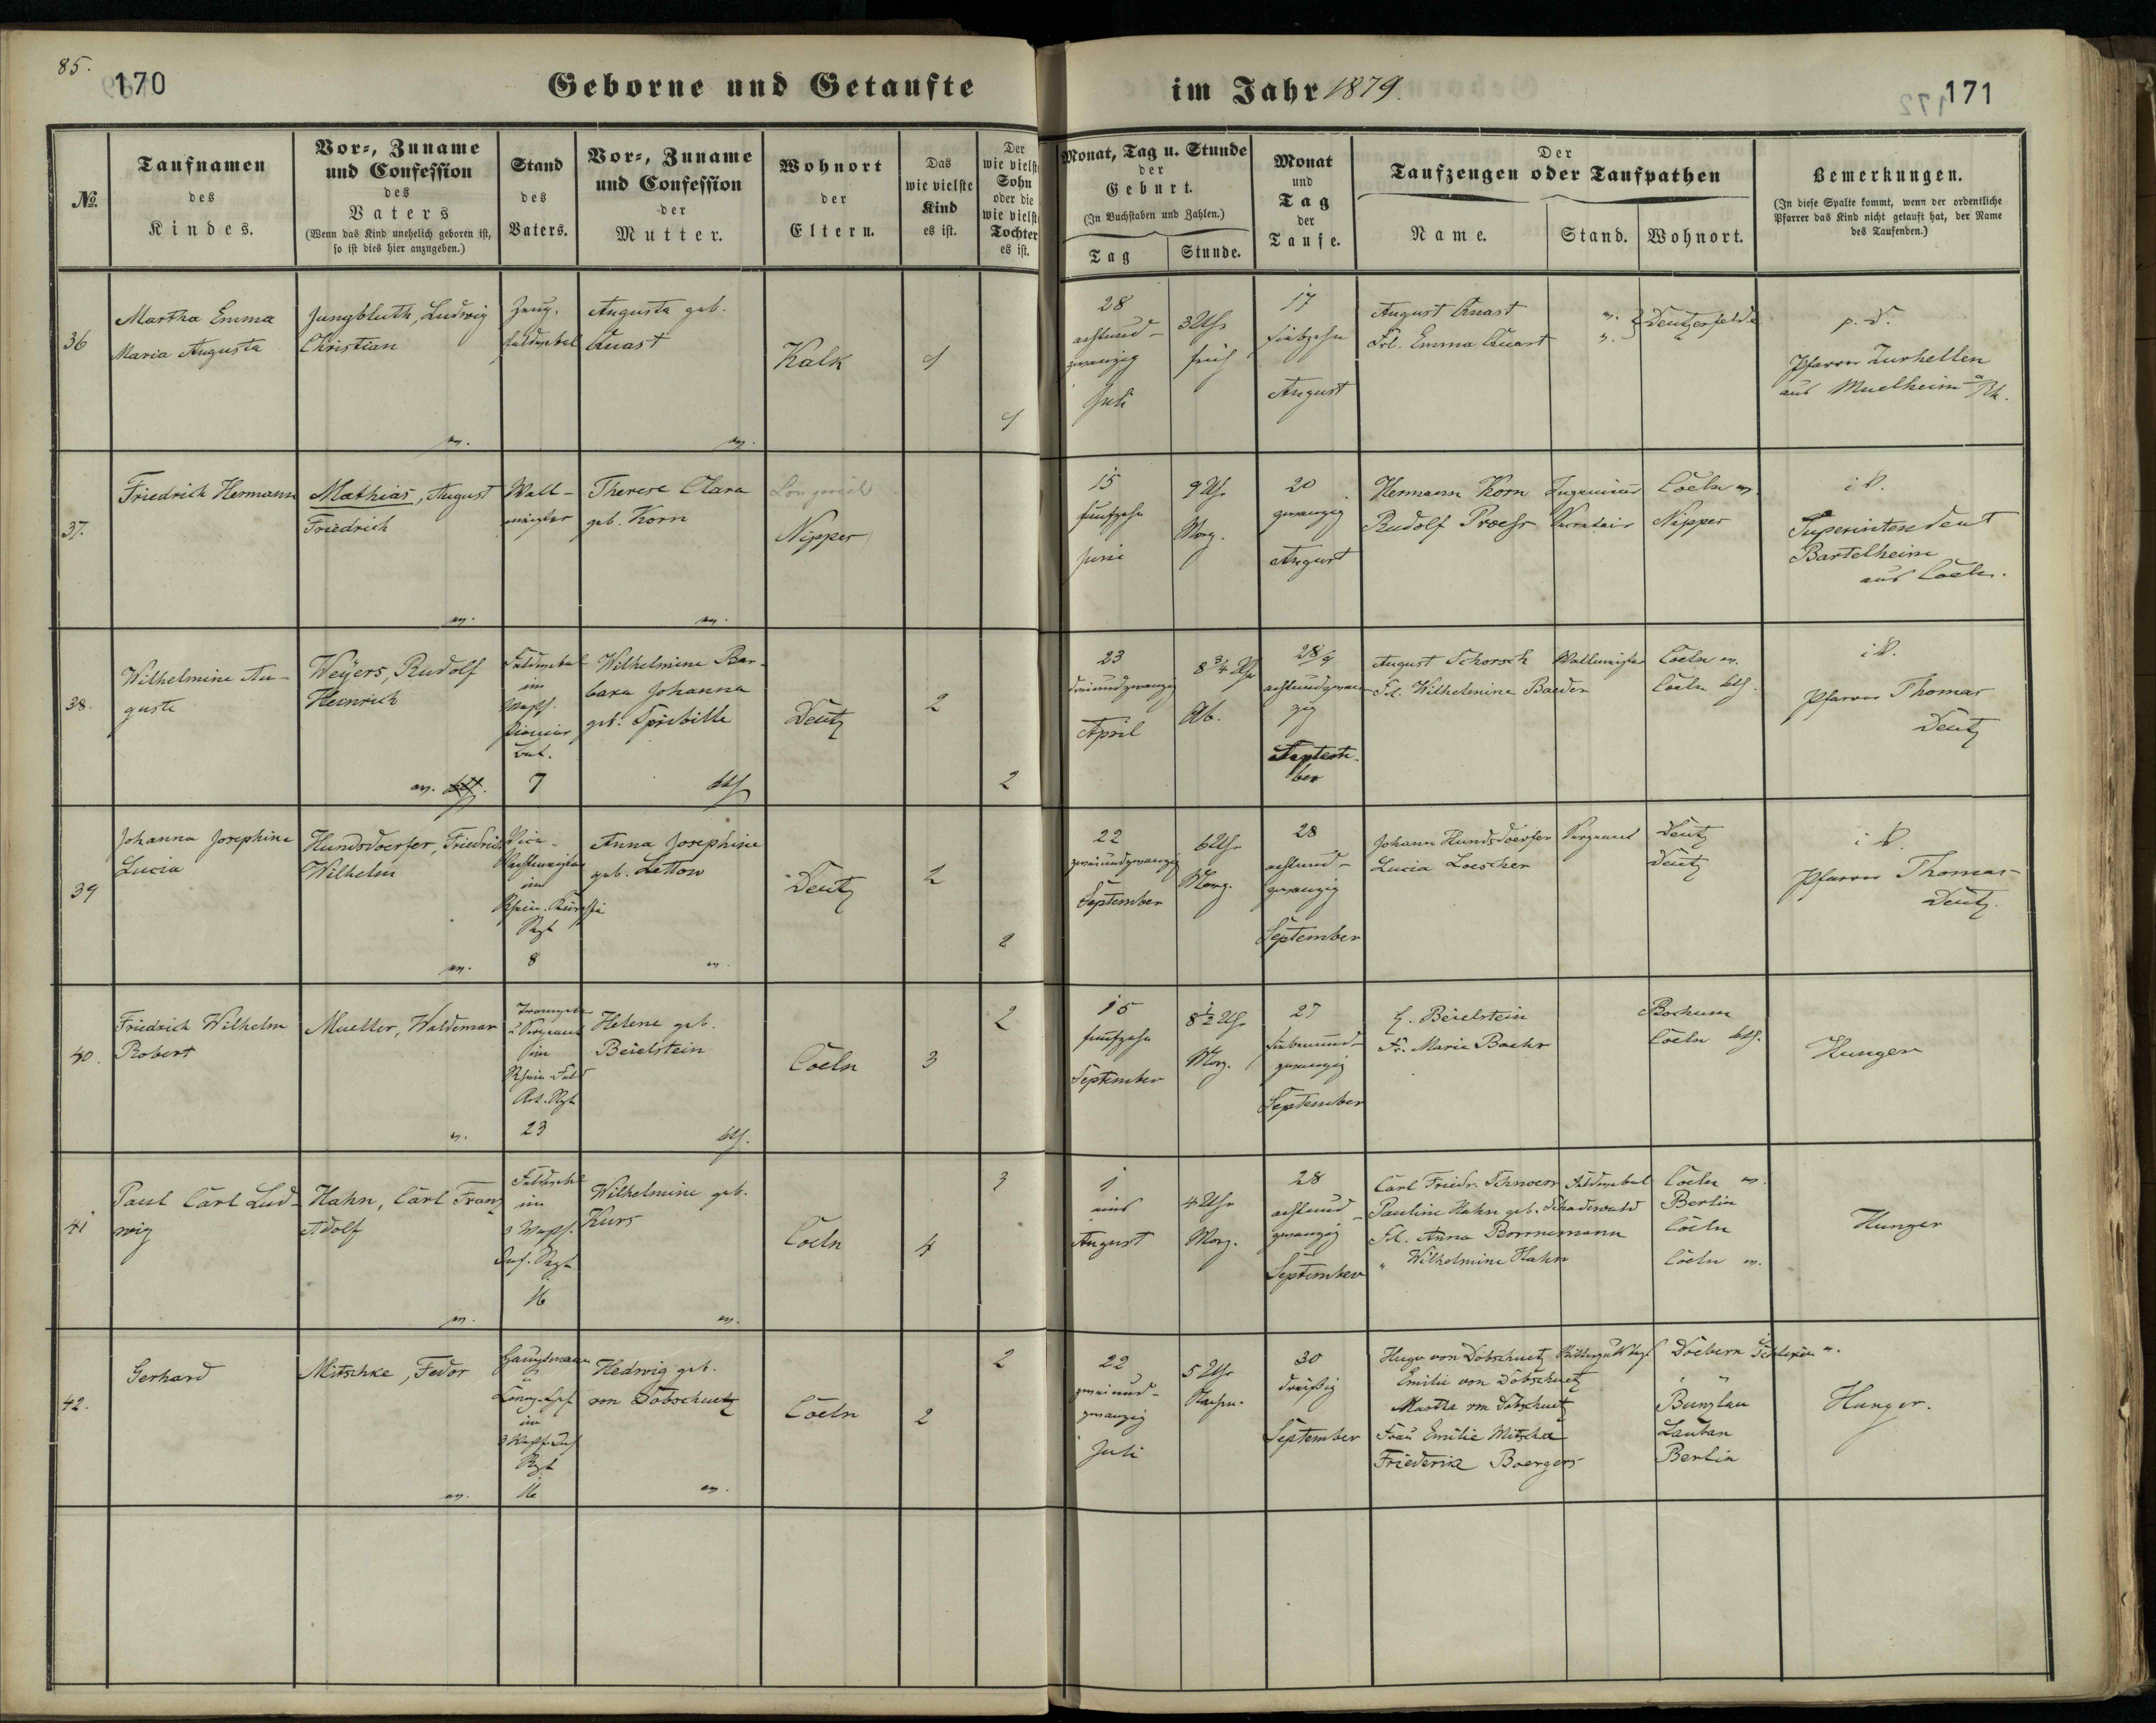 85.
170
Geborne und Getaufte
№
Taufnamen
des
Kindes.
Vor-, Zuname
und Confession
des
Vaters
(Wenn das Kind unehelich geboren ist,
so ist dies hier anzugeben.)
Stand
des
Vaters.
Vor-, Zuname
und Confession
der
Mutter.
Wohnort
der
Eltern.
Das
wie vielste
Kind
es ist.
Der
wie vielste
Sohn
oder die
wie vielste
Tochter
es ist.
36
Martha Emma
Maria Augusta
Jungbluth, Ludwig
Christian
ev.
Zeug-
feldwebel
Augusta geb.
Quast
ev.
Kalk
1
1
37.
Friedrich Hermann
Mathias, August
Friedrich
ev.
Wall-
meister
Therese Clara
geb. Korn
ev.
Longerich
Nippes
38.
Wilhelmine Au-
guste
Weyers, Rudolf
Heinrich
ev.
Feldwebel
im
Westf.
Pionier
Bat.
7
Wilhelmine Bar-
bara Johanna
geb. Spribille
kth
Deutz
2
2
39
Johanna Josephine
Lucia
Hundsdoerfer, Friedrich
Wilhelm
ev.
Vice-
Wachtmeister
im
Rhein. Kürassir
Regt
8
Anna Josephine
geb. Letton
ev.
Deutz
2
2
40.
Friedrich Wilhelm
Robert
Mueller, Waldemar
ev.
Trompeter
u Sergeant
im
Rhein Feld
Art. Rgt
23
Helene geb.
Beielstein
kth.
Coeln
3
2
41
Paul Carl Lud-
wig
Hahn, Carl Franz
Adolf
ev.
Feldwebel
im
3 Westf.
Inf. Regt
16
Wilhelmine geb.
Kurs
ev.
Coeln
4
3
42.
Gerhard
Mitschke, Fedor
ev.
Hauptmann
u
Comp. Chef
im
3 Westf. Inf
Rgt
16
Hedwig geb.
von Dobschuetz
ev.
Coeln
2
2
im Jahr 1879.
171
Monat, Tag u. Stunde
der
Geburt.
(In Buchstaben und Zahlen.)
Tag
Stunde.
Monat
und
Tag
der
Taufe.
Der
Taufzeugen oder Taufpathen
Name.
Stand.
Wohnort.
Bemerkungen.
(In diese Spalte kommt, wenn der ordentliche
Pfarrer das Kind nicht getauft hat, der Name
des Taufenden.)
28
achtund-
zwanzig
Juli
3 Uhr
früh
17
siebzehn
August
August Quast
Frl. Emma Quast
ev.
ev.
Deutzerfelde
p. d.
Pfarrer Zurhellen
aus Muelheim a/Rh.
15
fünfzehn
Juni
9 Uhr
Morg.
20
zwanzig
August
Hermann Korn
Rudolf Proehs
Ingenieur
Secretair
Coeln ev.
Nippes
i. V.
Superintendent
Bartelheim
aus Coeln.
23
dreiundzwanzig
April
8 3/4 Uhr
Ab.
28/9
achtundzwan-
zig
Septem-
ber
August Schorsch
Frl. Wilhelmine Baeder
Wallmeister
Coeln ev.
Coeln kth.
i. V.
Pfarrer Thomas
Deutz
22
zweiundzwanzig
September
6 Uhr
Morg.
28
achtund-
zwanzig
September
Johann Hundsdoerfer
Lucia Loescher
Sergeant
Deutz
Deutz
i. V.
Pfarrer Thomas-
Deutz.
15
fünfzehn
September
8 1/2 Uhr
Morg.
27
siebenund-
zwanzig
September
H. Beielstein
Fr. Marie Baehr
Bochum
Coeln kth.
Hunger
1
eins
August
4 Uhr
Morg.
28
achtund-
zwanzig
September
Carl Friedr. Schnoerr
Pauline Hahn geb. Schadewald
Frl. Anna Bornemann
" Wilhelmine Hahn
Feldwebel
Coeln ev.
Berlin
Coeln
Coeln ev.
Hunger
22
zweiund-
zwanzig
Juli
5 Uhr
Nachm.
30
dreißig
September
Hugo von Dobschuetz
Emilie von Dobschuetz
Martha von Dobschuetz
Frau Emilie Mitschke
Friederike Boergers
Doebern Schlesien ev.
" "
Bunzlau
Lauban
Berlin
Hunger.